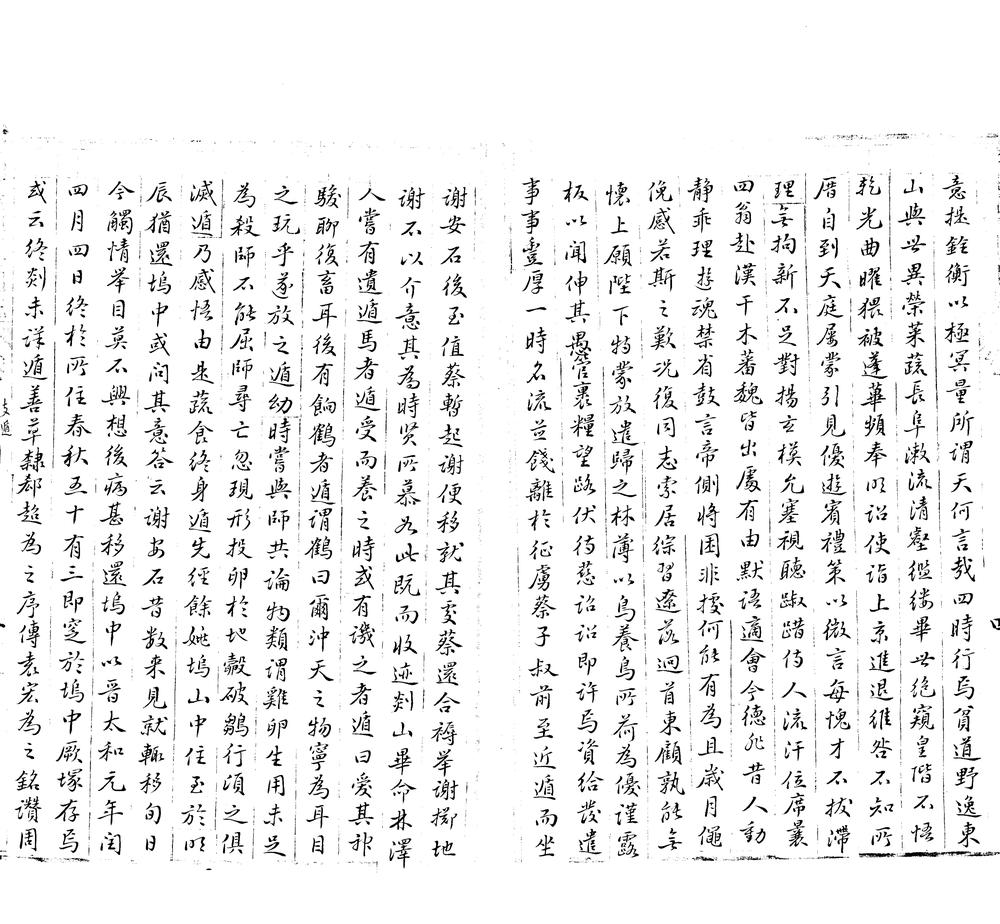 意握銓衡以極冥量所謂天何言哉四時行焉貧道野逸東
山與世異榮菜蔬長阜漱流清壑繿縷畢世絕窺皇階不悟
乾光曲曜猥被蓬蓽頻奉明詔使詣上京進退維咎不知所
厝自到天庭屢蒙引見優遊賓禮策以微言每愧才不拔滯
理無拘新不足對揚玄模允塞視聽踧踖侍人流汗位席曩
四翁赴漢干木蕃魏皆出處有由默語適會今德非昔人動
靜乖理遊魂禁省鼓言帝側將困非據何能有為且歲月僶
俛感若斯之歎況復同志索居綜習遼落迴首東顧孰能無
懷上願陛下特蒙放遣歸之林薄以鳥養鳥所荷為優謹露
板以聞伸其愚管裹糧望路伏待慈詔詔即許焉資給發遣
事事豐厚一時名流並餞離於征虜蔡子叔前至近遁而坐
謝安石後至值蔡暫起謝便移就其處蔡還合褥舉謝擲地
謝不以介意其為時賢所慕如此既而收迹剡山畢命林澤
人嘗有遺遁馬者遁受而養之時或有譏之者遁曰愛其神
駿聊復畜耳後有餉鶴者遁謂鶴曰爾沖天之物寧為耳目
之玩乎遂放之遁幼時嘗與師共論物類謂雞卵生用未足
為殺師不能屈師尋亡忽現形投卵於地鷇破鶵行頃之俱
滅遁乃感悟由是蔬食終身遁先經餘姚塢山中住至於明
辰猶還塢中或問其意答云謝安石昔數來見就輒移旬日
今觸情舉目莫不興想後病甚移還塢中以晉太和元年閏
四月四日終於所住春秋五十有三即窆於塢中厥塚存焉
或云終剡未詳遁善草隸郗超為之序傳袁宏為之銘讚周
支遁
四